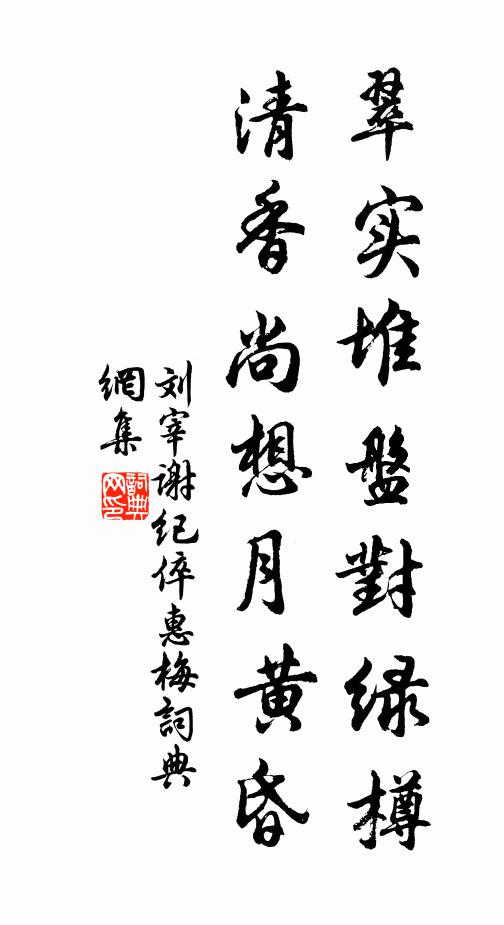 翠实堆盤對绿樽
清香尚想月黄昏
刘宰谢纪倅惠梅詞典
網集
詞典
网印